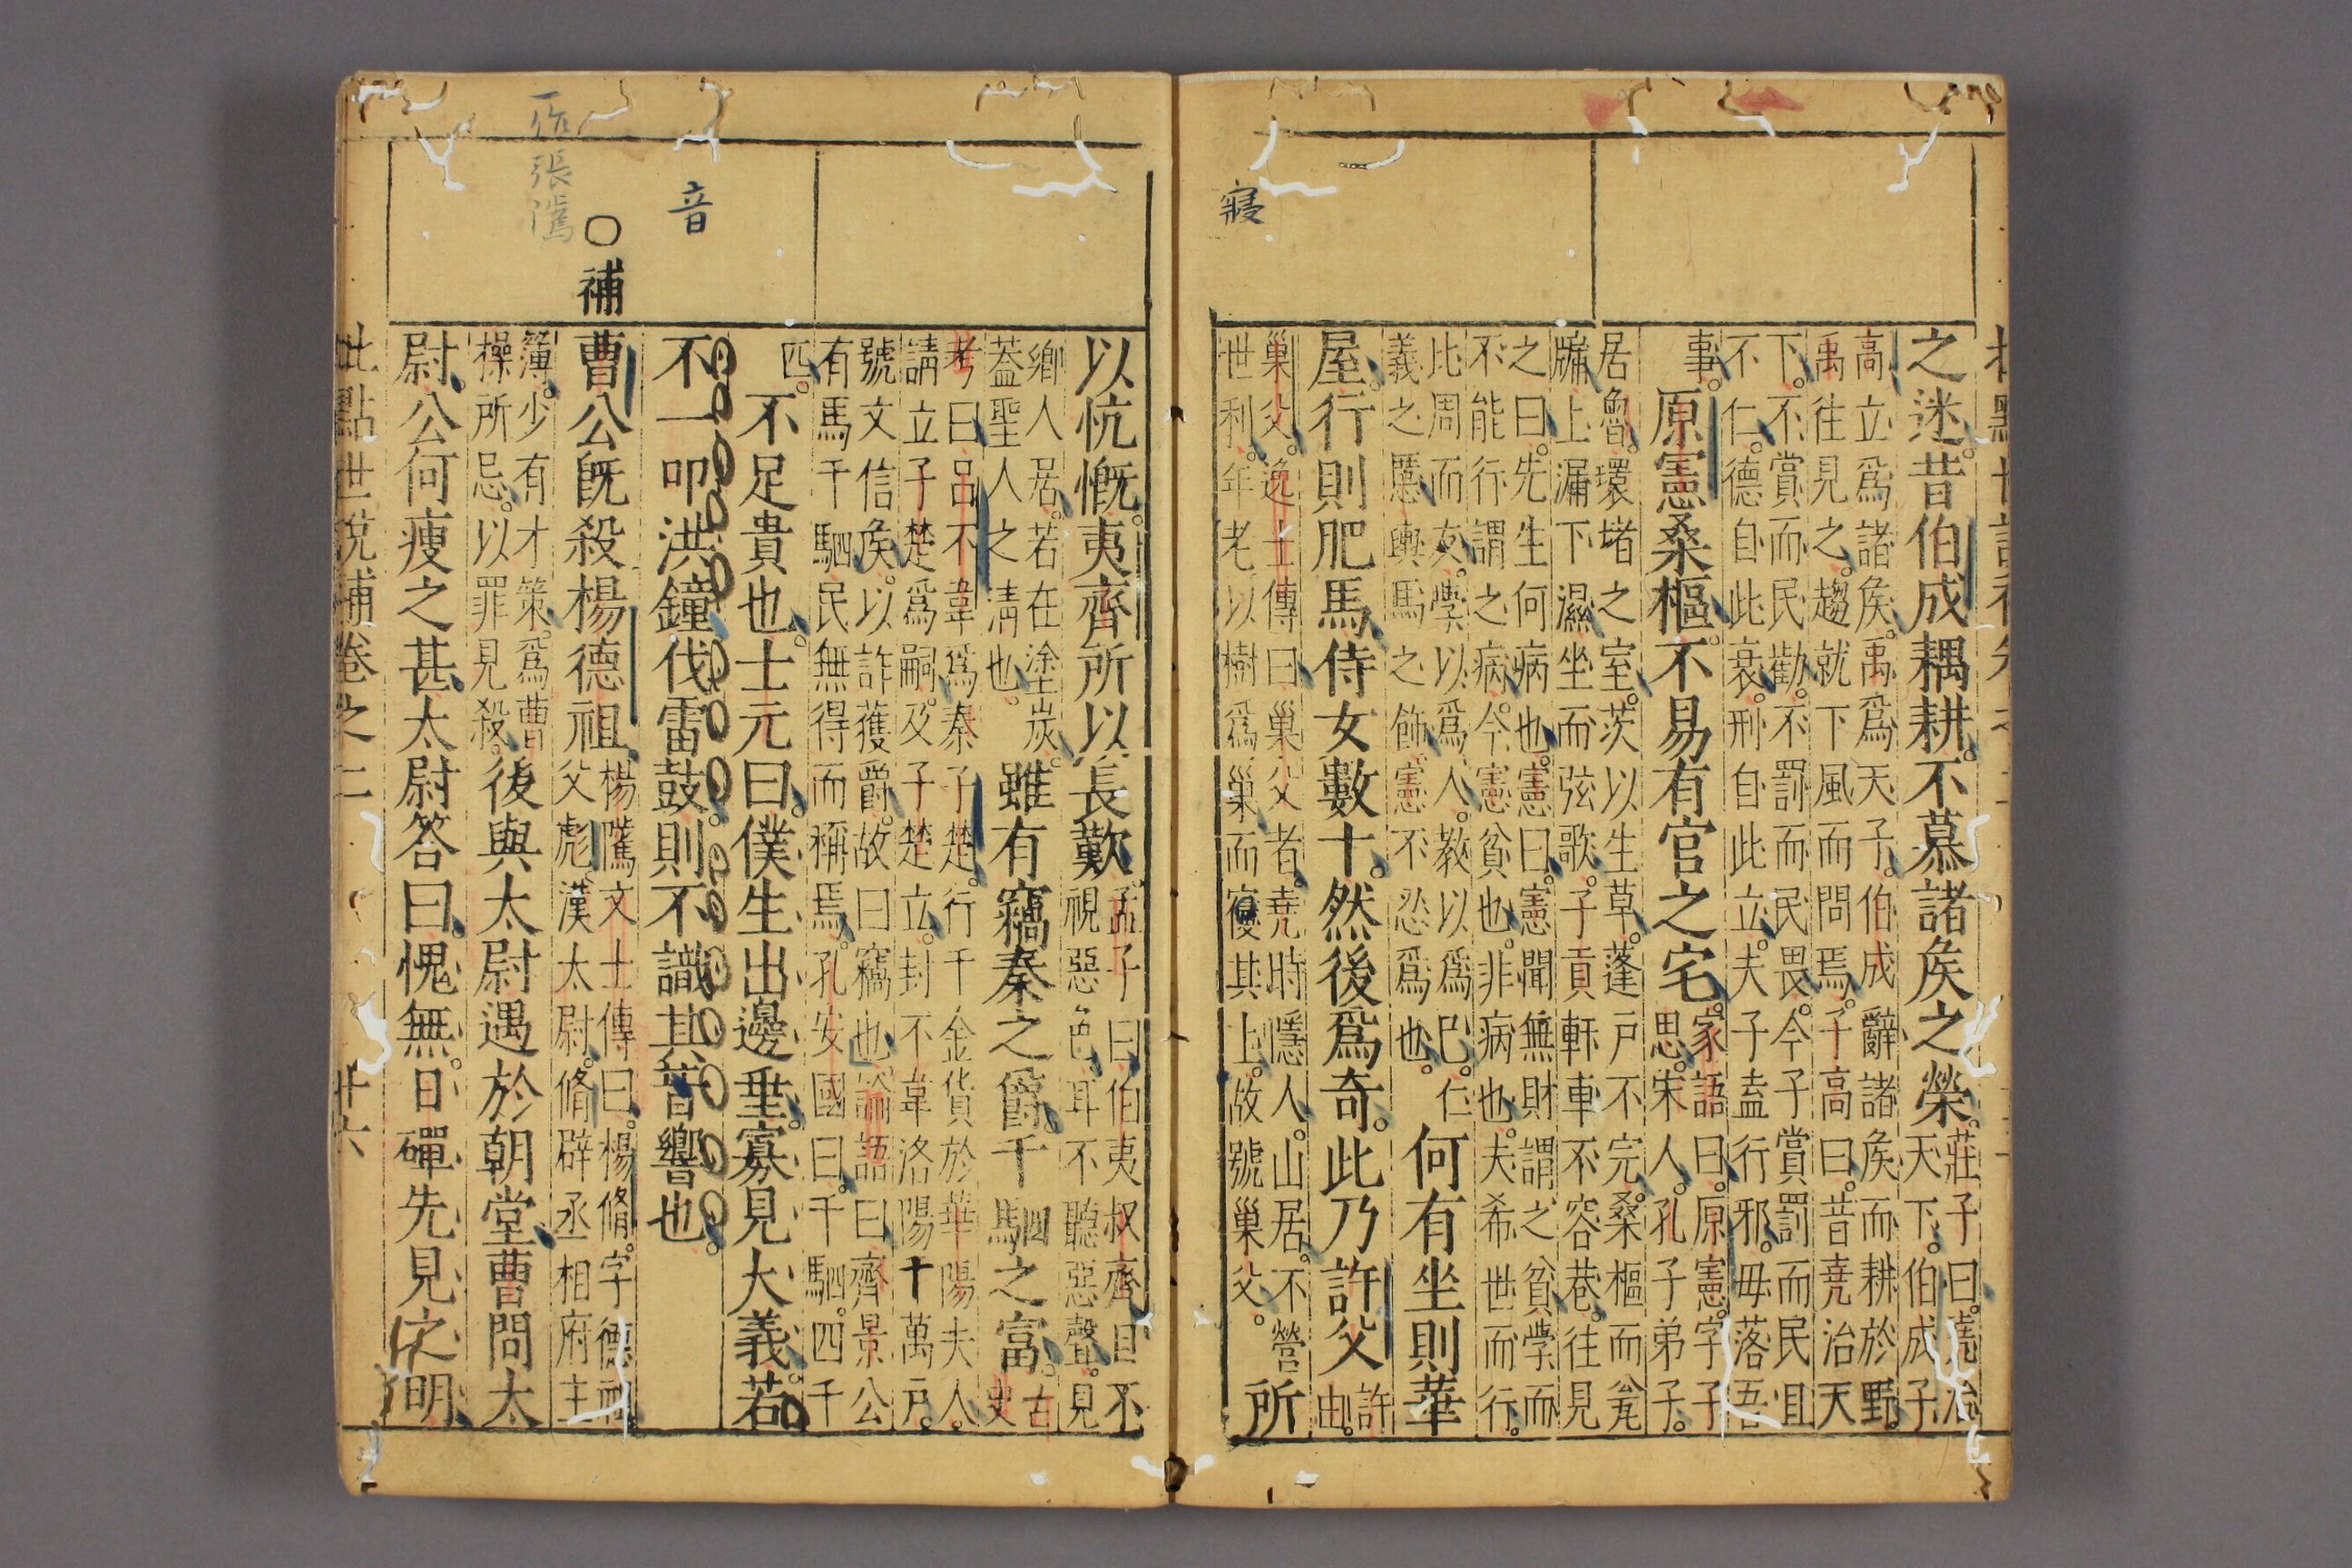 寢
之迷。昔伯成耦耕。不慕諸矦之榮。
莊子曰。堯治
天下。伯成子
高立爲諸矦。禹爲天子。伯成辭諸矦而耕於野。
禹往見之。趨就下風而問焉。子高曰。昔堯治天
下。不賞而民勸。不罰而民畏。今子賞罰而民且
不仁。德自此衰。刑自此立。夫子盍行邪。毋落吾
事。
原憲桑樞。不易有官之宅。
家語曰。原憲。字子
思。宋人。孔子弟子。
居魯。環堵之室。茨以生草。蓬戶不完。桑樞而瓮
牖上漏下濕坐而弦歌。子貢軒車不容巷。往見
之曰。先生何病也。憲曰。憲聞無財謂之貧。學而
不能行謂之病。今憲貧也。非病也。夫希世而行。
比周而友。學以爲人。教以爲己。仁
義之慝輿馬之飾。憲不忍爲也。
何有坐則華
屋。行則肥馬。侍女數十。然後爲奇。此乃許父
許
由。
巢父。逸士傳曰巢父者。堯時隱人。山居。不營
世利。年老以樹爲巢而寢其上。故號巢父。
所
以忼慨。夷齊所以長歎
孟子曰伯夷叔齊目不
視惡色耳不聽惡聲。見
鄉人居。若在塗炭。
葢聖人之清也。
雖有竊秦之爵。千駟之富。
古
史
考曰呂不韋爲秦子楚。行千金貨於華陽夫人。
請立子楚爲嗣。及子楚立。封不韋洛陽十萬戶。
號文信矦。以詐獲爵。故曰竊也論語曰齊景公
有馬千駟民無得而稱焉。孔安國曰。千駟。四千
匹。
不足貴也。士元曰。僕生出邊垂。寡見大義。若
音
不一叩洪鐘伐雷鼓則不識其音響也。
○補
一作張隲
曹公既殺楊德祖
楊隲文士傳曰。楊脩。字德祖
父彪。漢太尉。脩辟丞相府主
簿。少有才策。爲曹
操所忌。以罪見殺。
後與太尉遇於朝堂。曹問太
尉。公何瘦之甚太尉答曰。愧無。日磾先見之明
批點世說補卷之二 廿六